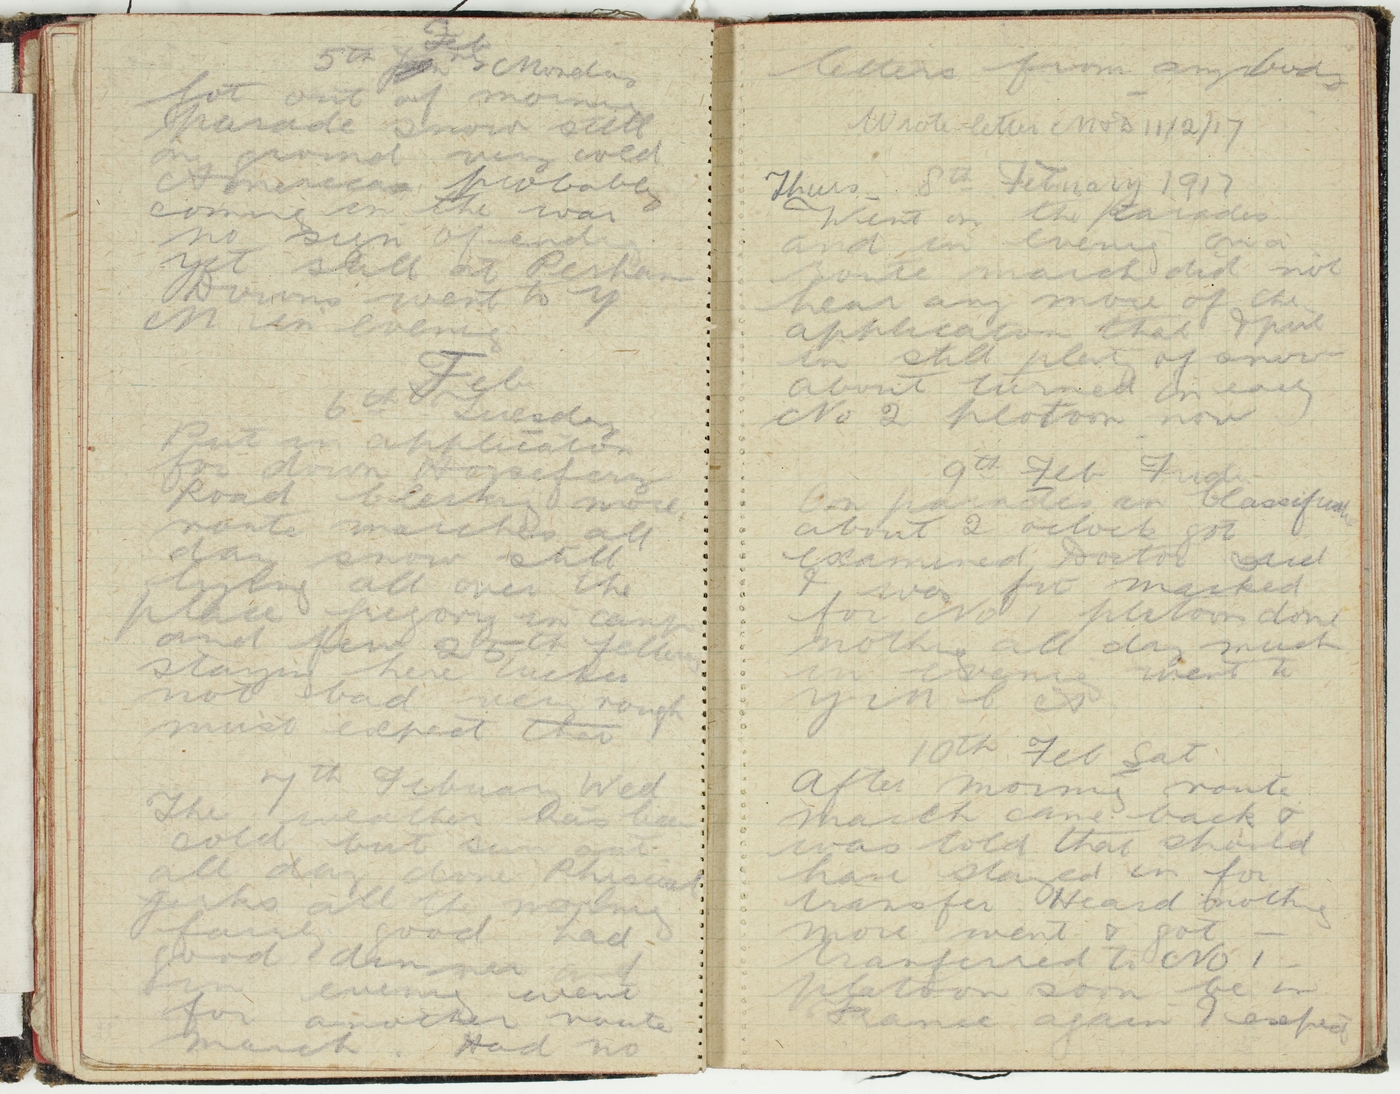 Feb
5th Monday
Got out of morning
parade snow still
on ground very cold
Americas probably
coming in the war
no sign of ending
yet still at Perham
Downs went to Y
M in evening
Feb
6th Tuesday
Put in application
for down Horseferry
Road more
route marches all
day snow still
lying all over the
place Gregory in camp
and few 25th fellows
staying here tucker
not bad very rough
must expect that
7th February Wed
The weather has been
cold but sun out
all day done Phisical
jerks all the morning
fairly good had
good dinner and
in evening went
for another route
march. Had no
letters from anybody
Wrote letter 11/2/17
Thurs 8th February 1917
Went on the parades
and in evening on a
route march did not
hear any more of the
application that I put
in still plenty of snow
about turned in early
No 2 platoon now
9th Feb Frid
On parades an Classification
about 2 oclock got
examined Doctor said
I was fit marked
for No 1 platoon done
nothing all day much
in evening went to
Y M C A
10th Feb Sat
After morning route
march came back &
was told that should
have stayed in for
transfer Heard nothing
more went & got
tranferred to No 1
platoon soon be in
France again I expect